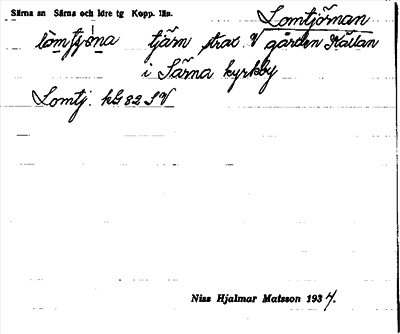 Särna sn Särna och Idre tg Kopp. län.
Lomtjörnan
lòmtjö̀na tjärn strax V gården Källan
i Särna kyrkby
Lomtj. kG 82 SV
Niss Hjalmar Matsson 1934.